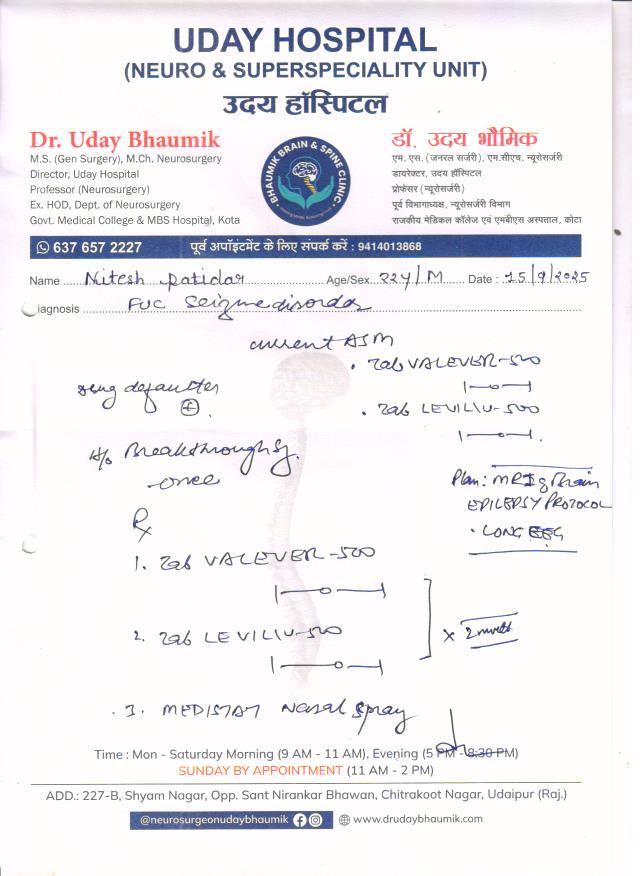 UDAY HOSPITAL
(NEURO & SUPERSPECIALITY UNIT)
उदय हॉस्पिटल
Dr. Uday Bhaumik
M.S. (Gen Surgery), M.Ch. Neurosurgery
Director, Uday Hospital
Professor (Neurosurgery)
Ex. HOD, Dept. of Neurosurgery
Govt. Medical College & MBS Hospital, Kota
BHAUMIK BRAIN & SPINE CLINIC
डॉ. उदय भौमिक
एम. एस. (जनरल सर्जरी), एम.सीएच. न्यूरोसर्जरी
डायरेक्टर, उदय हॉस्पिटल
प्रोफेसर (न्यूरोसर्जरी)
पूर्व विभागाध्यक्ष, न्यूरोसर्जरी विभाग
राजकीय मेडिकल कॉलेज एवं एमबीएस अस्पताल, कोटा
637 657 2227 पूर्व अपॉइंटमेंट के लिए संपर्क करें : 9414013868
Name Nitesh Patidar Age/Sex 22Y/M Date : 15/9/2025
iagnosis FUC Seizure disorder
current ASM
. Tab VALEVER-500
1-0-1
Drug defaulter
+
. Tab LEVILIV-500
1-0-1
H/o Breakthrough Sz.
-once
Plan: MRI Brain
EPILEPSY PROTOCOL
. LONG EEG
Rx
1. Tab VALEVER-500
1-0-1
2. Tab LEVILIV-500
1-0-1
x 2 months
3. MEDISTAT Nasal Spray
Time : Mon - Saturday Morning (9 AM - 11 AM), Evening (5 PM - 8:30 PM)
SUNDAY BY APPOINTMENT (11 AM - 2 PM)
ADD.: 227-B, Shyam Nagar, Opp. Sant Nirankar Bhawan, Chitrakoot Nagar, Udaipur (Raj.)
@neurosurgeonudaybhaumik www.drudaybhaumik.com